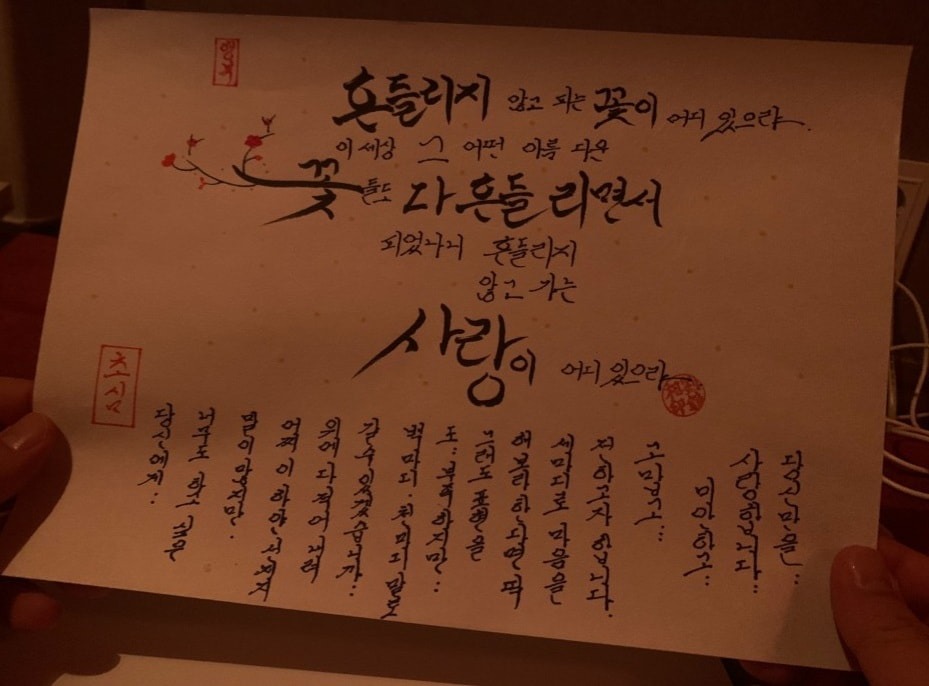 행복
흔들리지 않고 피는 꽃이 어디 있으랴.
이 세상 그 어떤 아름다운
꽃들도 다 흔들리면서
피었나니 흔들리지
않고 가는
사랑이 어디 있으랴
초심
당신에게...
너무도 하고 싶은
말이 많지만.
어찌 이 하얀
위에 다 적어 내려
갈 수 있겠습니까...
백마디. 천마디 말로
도.. 부족하지만...
그래도 표현을
해보라 하시면 딱
세마디로 마음을
전하고자 합니다.
고맙고...
미안하고...
사랑합니다...
당신만을...